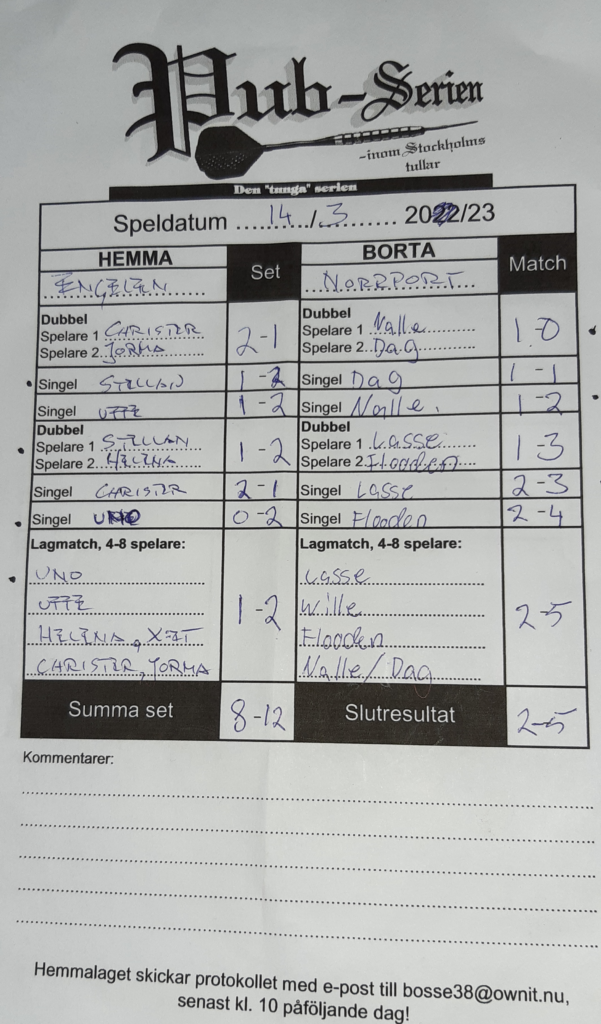 Pub-Serien
-inom Stockholms
tullar
Den "tunga" serien
Speldatum 14/3 2022/23
HEMMA Set BORTA Match
ENGELEN NORRPORT
Dubbel Dubbel
Spelare 1 CHRISTER 2-1 Spelare 1 Nalle 1-0
Spelare 2 JORMA Spelare 2 Dag
Singel STELLAN 1-2 Singel Dag 1-1
Singel UFFE 1-2 Singel Nalle. 1-2
Dubbel Dubbel
Spelare 1 STELLAN 1-2 Spelare 1 Lasse 1-3
Spelare 2 HELENA Spelare 2 Flooden
Singel CHRISTER 2-1 Singel Lasse 2-3
Singel UNO 0-2 Singel Flooden 2-4
Lagmatch, 4-8 spelare: Lagmatch, 4-8 spelare:
UNO Lasse
UFFE 1-2 Wille 2-5
HELENA, Flooden
CHRISTER, JORMA Nalle/Dag
Summa set 8-12 Slutresultat 2-5
Kommentarer:
Hemmalaget skickar protokollet med e-post till bosse38@ownit.nu,
senast kl. 10 påföljande dag!